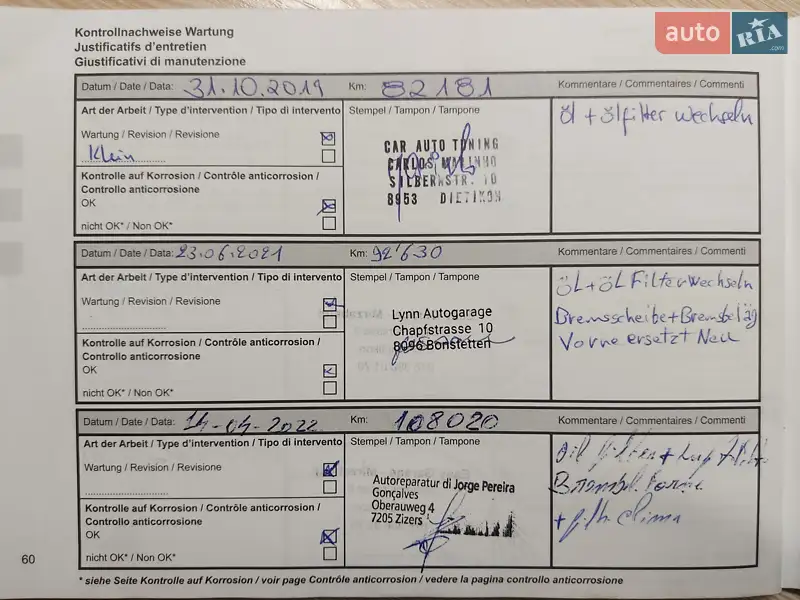 auto RIA.com
Kontrollnachweise Wartung
Justificatifs d'entretien
Giustificativi di manutenzione
Datum / Date / Data: 31.10.2019 Km: 82181 Kommentare / Commentaires / Commenti
Art der Arbeit / Type d'intervention / Tipo di intervento Stempel / Tampon / Tampone
öl + ölfilter wechseln
Wartung / Revision / Revisione
Klein
CAR AUTO TUNING
CARLOS MARINHO
SILBERNSTR. 10
8953 DIETIKON
Kontrolle auf Korrosion / Contrôle anticorrosion /
Controllo anticorrosione
OK
nicht OK* / Non OK*
Datum / Date / Data: 23.06.2021 Km: 92'630 Kommentare / Commentaires / Commenti
Art der Arbeit / Type d'intervention / Tipo di intervento Stempel / Tampon / Tampone
öL + öL Filter wechseln
Bremsscheibe + Bremsbeläg
Vorne ersetzt Neu
Wartung / Revision / Revisione
Lynn Autogarage
Chapfstrasse 10
8096 Bonstetten
Kontrolle auf Korrosion / Contrôle anticorrosion /
Controllo anticorrosione
OK
nicht OK* / Non OK*
Datum / Date / Data: 14-04-2022 Km: 108020 Kommentare / Commentaires / Commenti
Art der Arbeit / Type d'intervention / Tipo di intervento Stempel / Tampon / Tampone
Wartung / Revision / Revisione
Autoreparatur di Jorge Pereira
Gonçalves
Oberauweg 4
7205 Zizers
Kontrolle auf Korrosion / Contrôle anticorrosion /
Controllo anticorrosione
OK
nicht OK* / Non OK*
60
* siehe Seite Kontrolle auf Korrosion / voir page Contrôle anticorrosion / vedere la pagina controllo anticorrosione